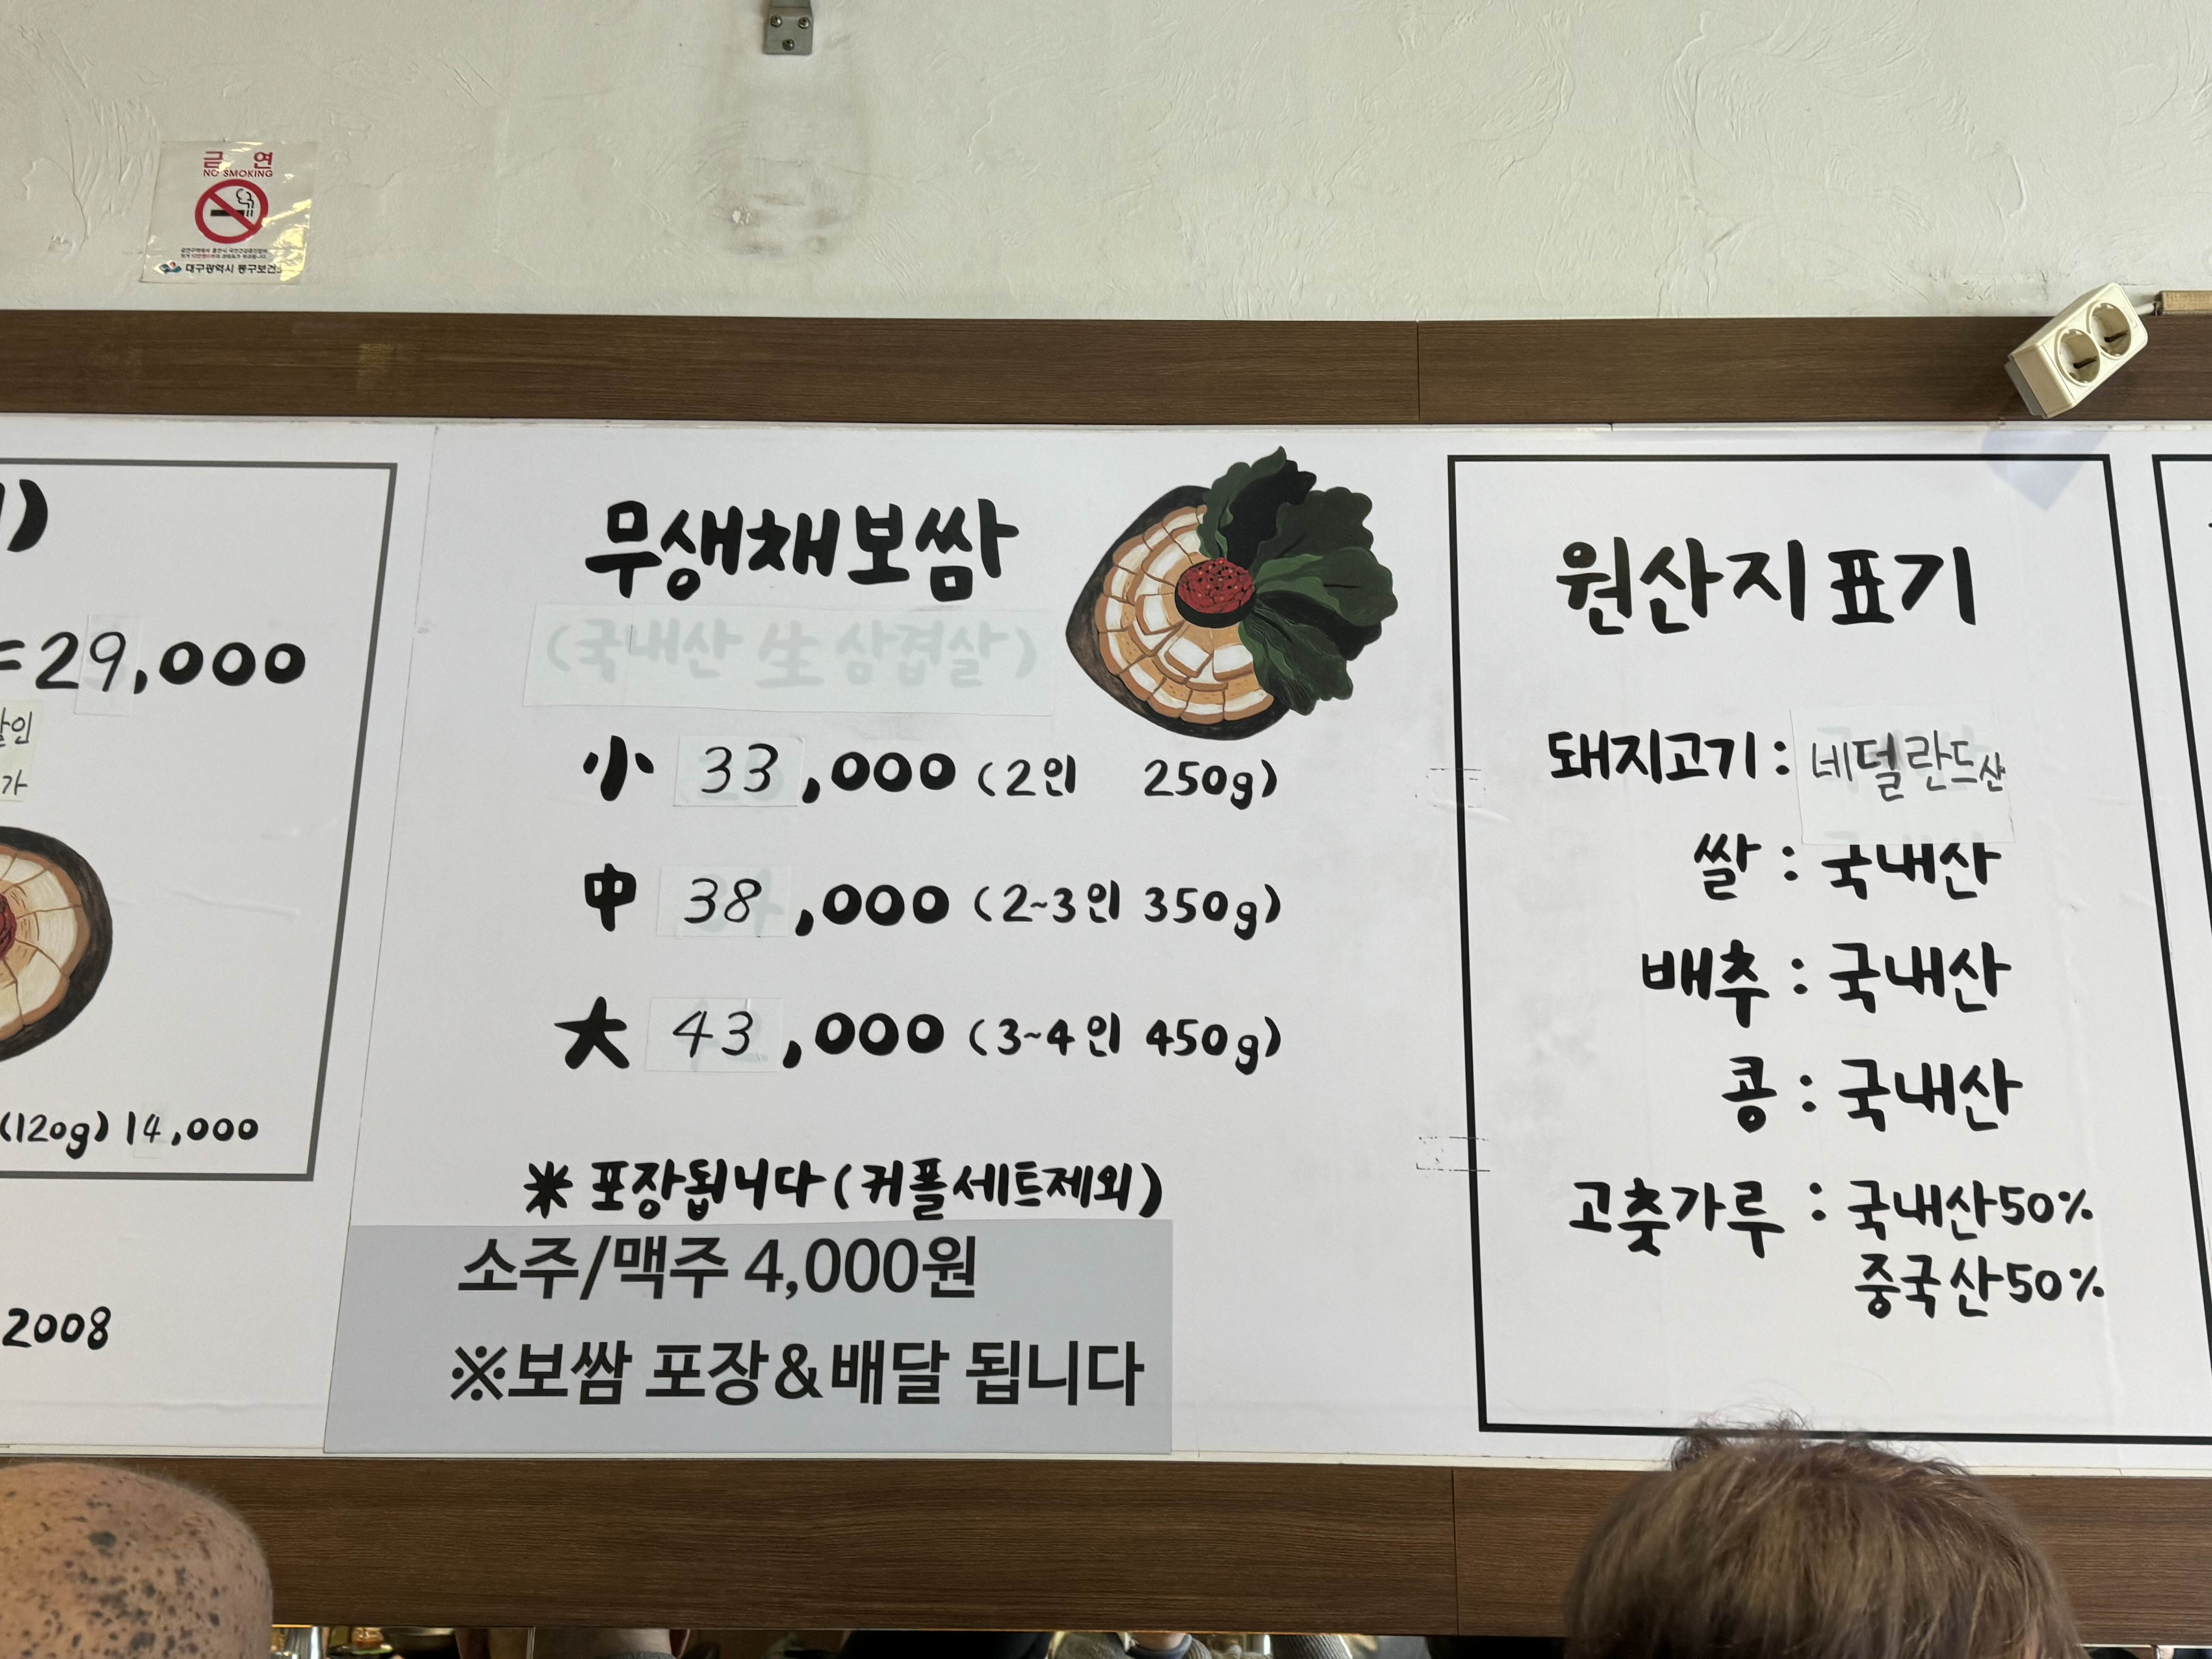 금 연
NO SMOKING
대구광역시 동구보건소
=29,000
할인
가
(120g) 14,000
2008
무생채보쌈
(국내산 生 삼겹살)
小 33,000 (2인 250g)
中 38,000 (2~3인 350g)
大 43,000 (3~4인 450g)
※ 포장됩니다 (커플세트제외)
소주/맥주 4,000원
※보쌈 포장&배달 됩니다
원산지 표기
돼지고기 : 네덜란드산
쌀 : 국내산
배추 : 국내산
콩 : 국내산
고춧가루 : 국내산50%
중국산50%